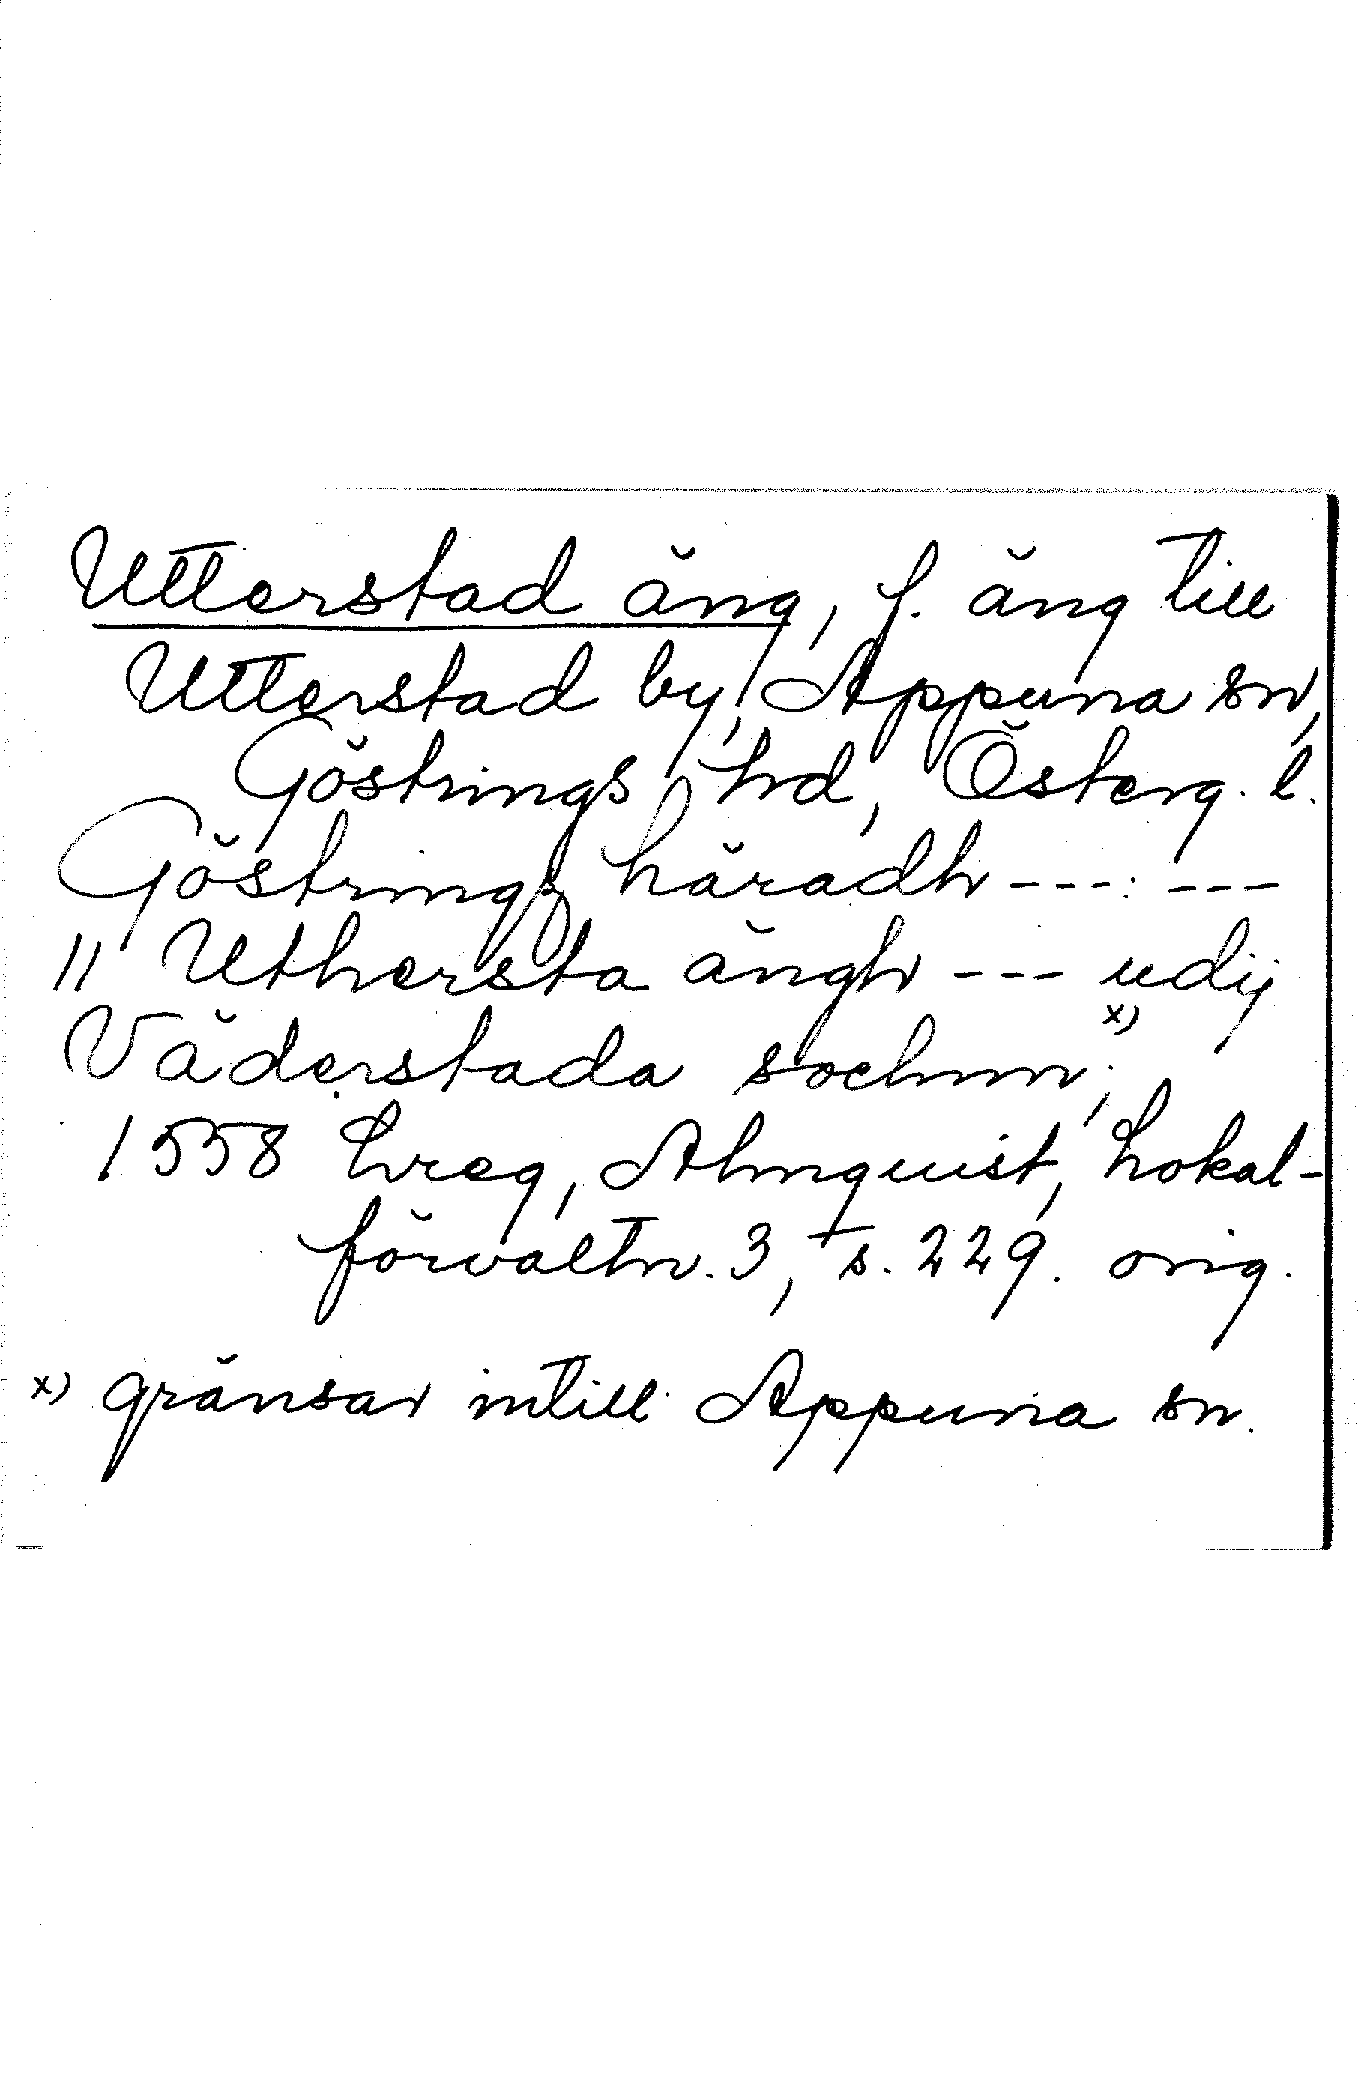 Utterstad äng, f. äng till
Utterstad by, Appuna sn,
Göstrings hd, Österg. l.
Göstrings häradh ---:---
11 Uthersta ängh --- udij
Väderstada sochnn x);
1558 Lreg, Almquist, Lokal-
förvaltn. 3, s. 229. orig.
x) gränsar intill Appuna sn.